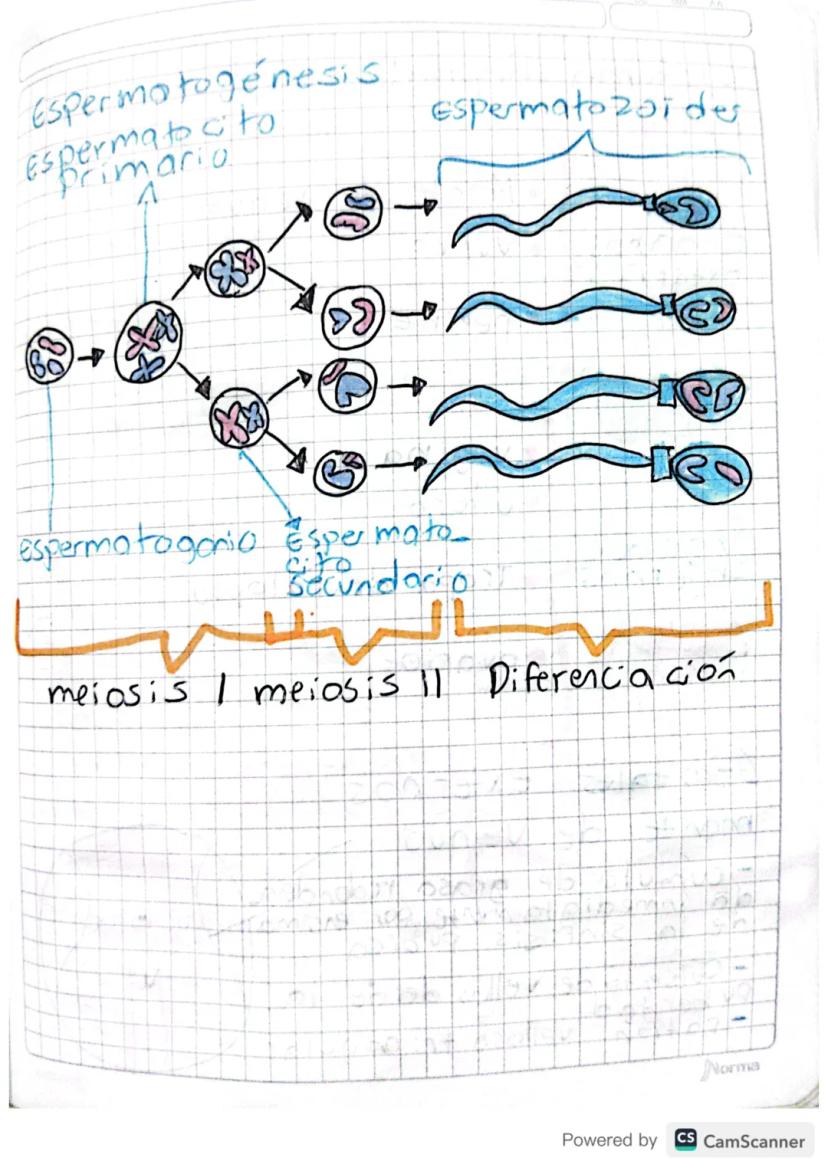 Espermatogénesis
Espermatocito
primario
Espermatozoides
Espermatogonio
Espermato_
cito
secundario
meiosis I meiosis II Diferenciación
Norma
Powered by CS CamScanner